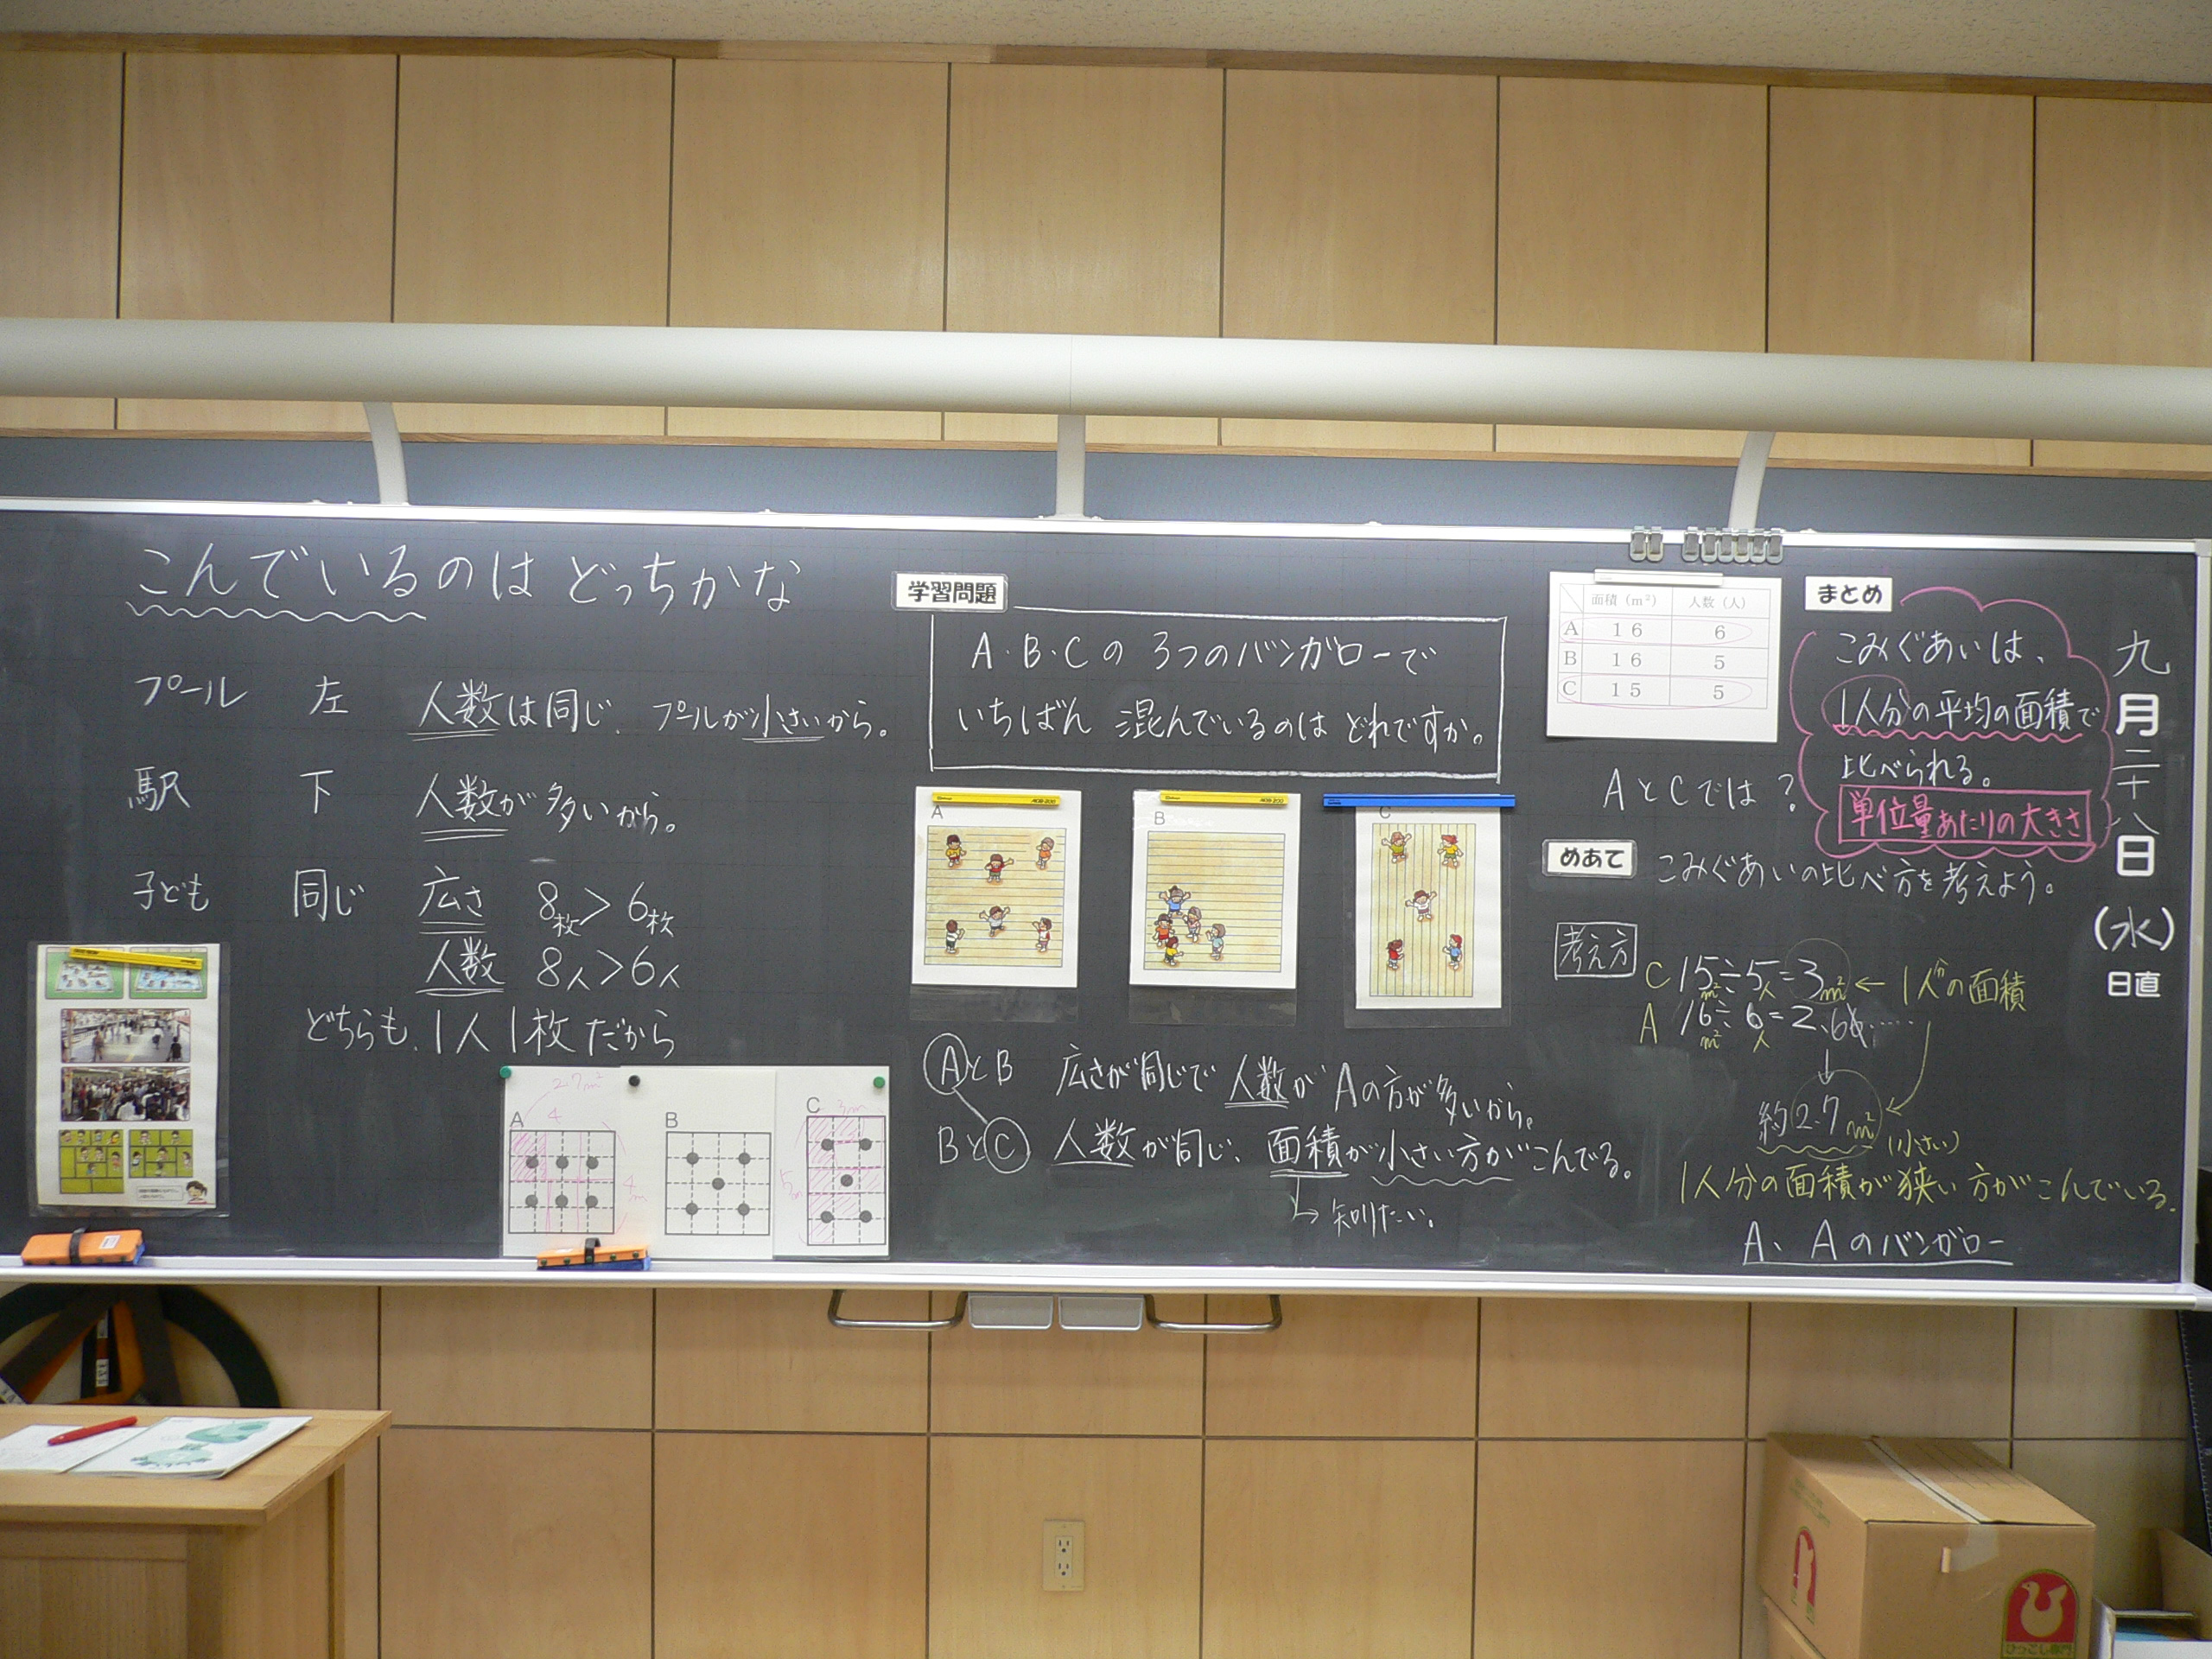 こんでいるのはどっちかな
プール 左 人数は同じ、プールが小さいから。
駅 下 人数が多いから。
子ども 同じ 広さ 8枚＞6枚
人数 8人＞6人
どちらも、1人1枚だから
27m²
A 4
4m
B
C 3m
5m
学習問題
A・B・Cの3つのバンガローで
いちばん混んでいるのはどれですか。
A
B
C
AとB 広さが同じで人数がAの方が多いから。
BとC 人数が同じ、面積が小さい方がこんでる。
↳知りたい。
面積（m²） 人数（人）
A 16 6
B 16 5
C 15 5
AとCでは？
めあて こみぐあいの比べ方を考えよう。
考え方
C 15m²÷5人=3m² ← 1人分の面積
A 16m²÷6人=2.66....
約2.7m²
(小さい)
1人分の面積が狭い方がこんでいる。
A、Aのバンガロー
まとめ
こみぐあいは、
1人分の平均の面積で
比べられる。
単位量あたりの大きさ
九月二十八日(水)
日直
ひっこし専門